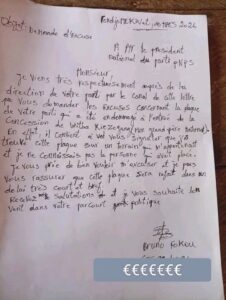 Objet: Demande d'excuse
à Mr le président
National du parti PNPS
Monsieur,
Je viens très respectueusement auprès de la
direction de Votre parti, par le canal de cette lettre
que Vous demander les excuses concernant la plaque
de Votre parti qui a été endommagé à l'entrée de la
Concession de
En effet, il convient à Vous signaler que
cette plaque sur un terrain qui m'appartenait
et je ne connaissais pas la personne qui avait placé.
Je vous prie de bien vouloir m'excuser et je puis
Vous rassurer que cette plaque sera refait dans un
délai très court et bref
Recevez mes Salutations et je Vous souhaite bon
Vent dans Votre parcourt politique
Bruno FOKOU
€€€€€€€